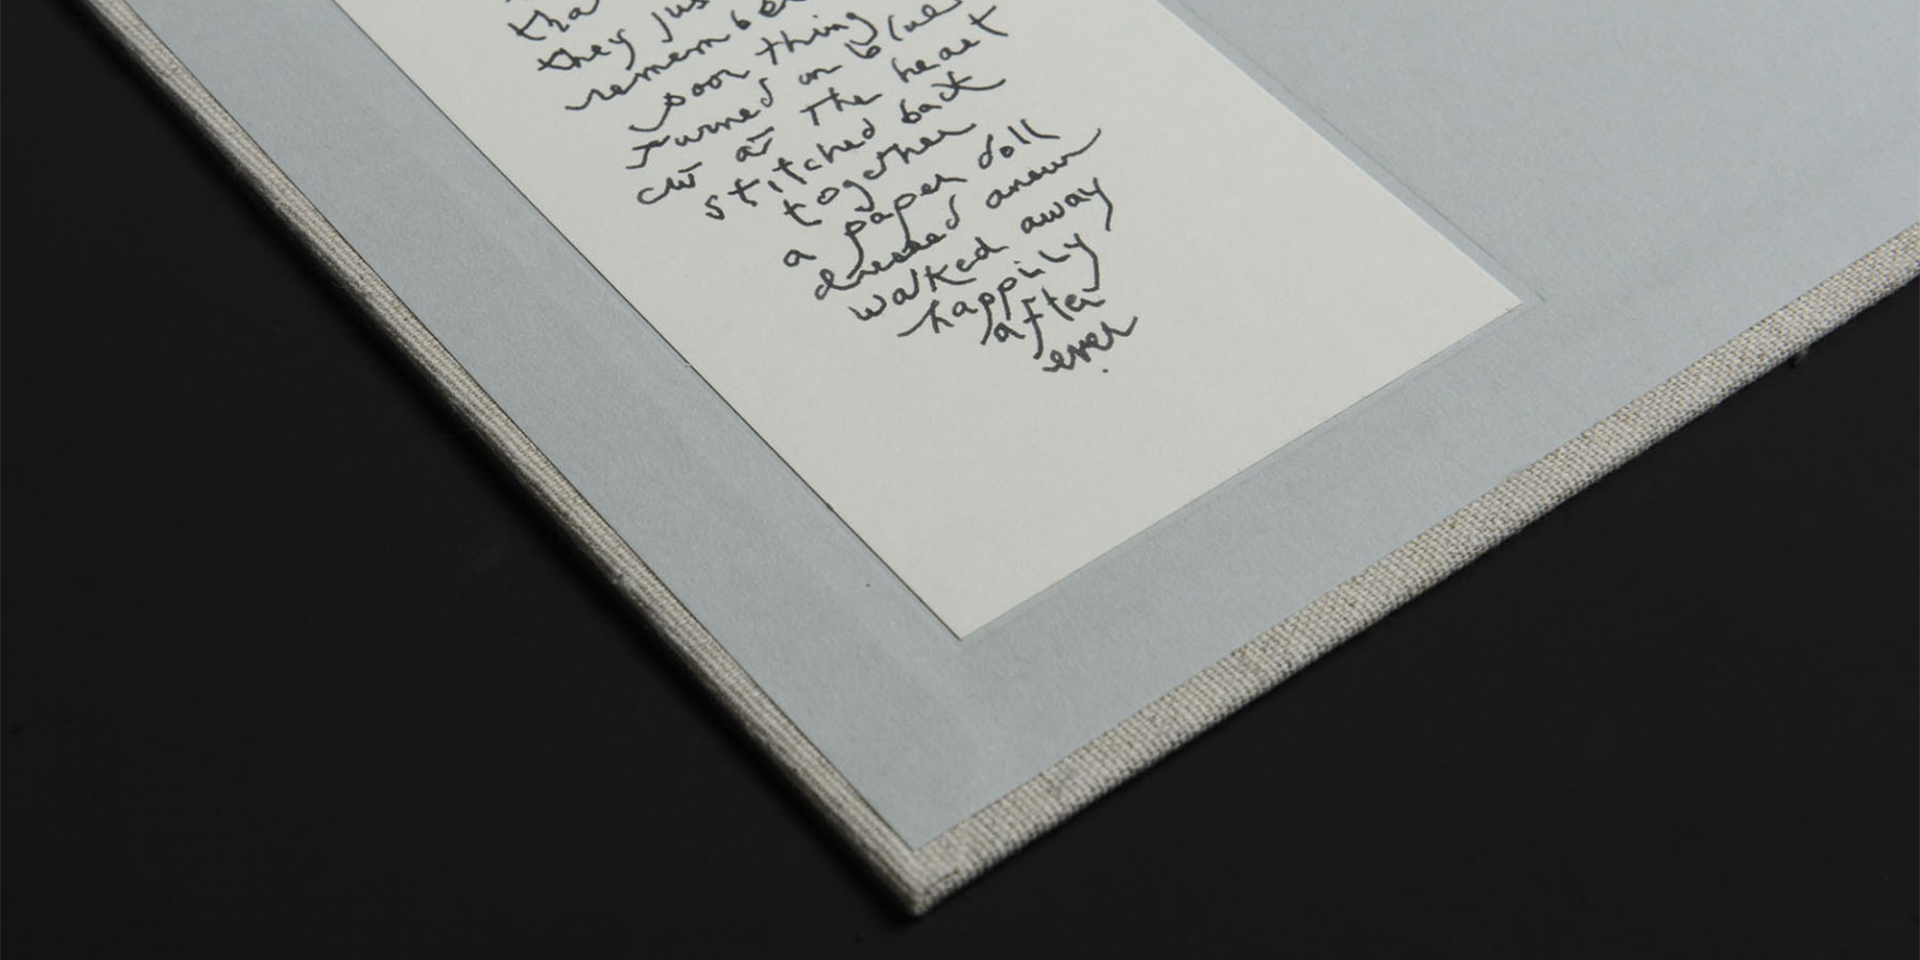 they jus
remembe
soon thing
turned on blue
cut at The heart
stitched back
together
a paper doll
dressed anew
walked away
happily
after
ever.